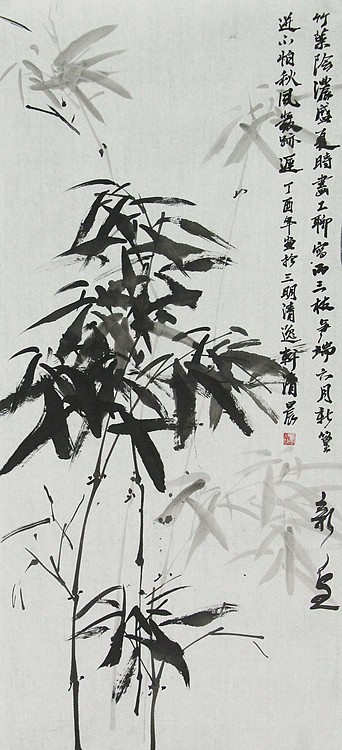 竹葉陰濃盛夏時畫工聊寫兩三枝無端六月新篁
迸不怕秋風發跡遲丁酉年畫於三明清逸軒清晨